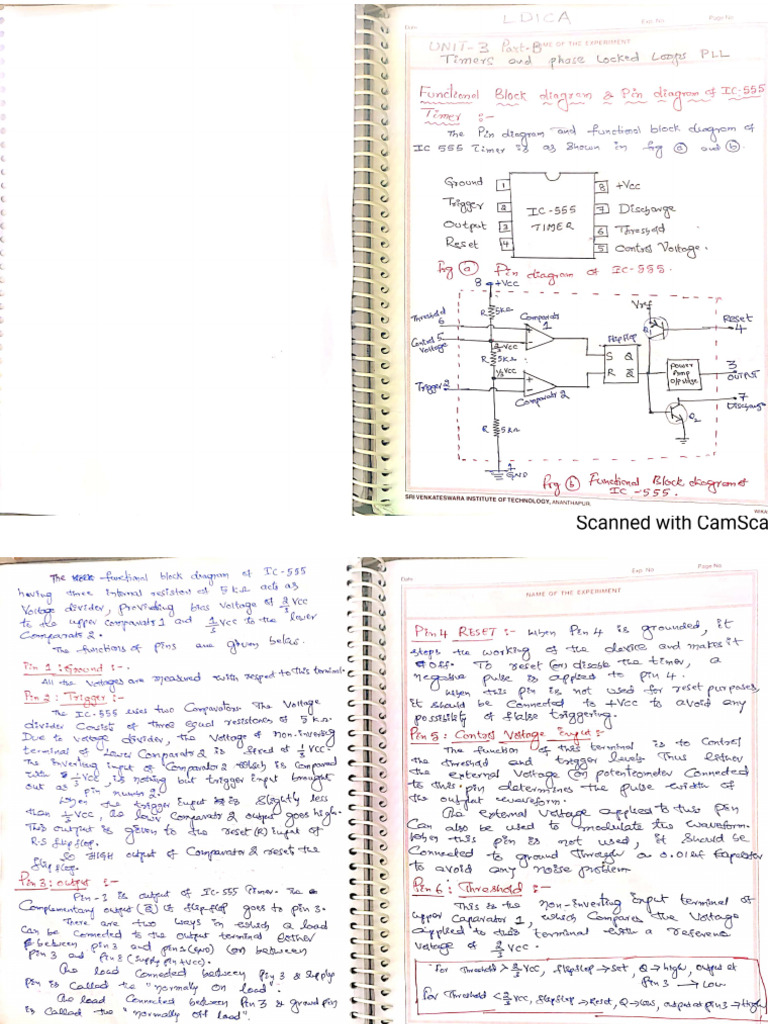 LDICA
Date
Exp. No.
Page No.
NAME OF THE EXPERIMENT
UNIT-3 Part-B
Timers and phase Locked Loops PLL
Functional Block diagram & Pin diagram of IC-555
Timer :-
The Pin diagram and functional block diagram of
IC 555 Timer is as shown in fig (a) and (b).
Ground 1
Trigger 2
Output 3
Reset 4
IC-555
TIMER
8 +Vcc
7 Discharge
6 Threshold
5 Control Voltage.
Fig (a) Pin diagram of IC-555.
8 +Vcc
R 5kΩ
Threshold
6
Control 5
Voltage
Comparator
1
2/3 Vcc
R 5kΩ
1/3 Vcc
Trigger 2
Comparator 2
R 5kΩ
1
GND
flipflop
S Q
R Q̅
Vref
Q1
Reset
4
Power
Amp
O/p stage
3
OUTPUT
7
Discharge
Q2
Fig (b) Functional Block diagram of
IC-555.
SRI VENKATESWARA INSTITUTE OF TECHNOLOGY, ANANTHAPUR.
Scanned with CamSca
The functional block diagram of IC-555
having three internal resistors of 5kΩ acts as
Voltage divider, providing bias voltage of 2/3 Vcc
to the upper comparator 1 and 1/3 Vcc to the lower
Comparator 2.
The functions of pins are given below.
Pin 1 : Ground :-
All the Voltages are measured with respect to this terminal.
Pin 2 : Trigger :-
The IC-555 uses two Comparators. The Voltage
divider Consists of three equal resistances of 5kΩ.
Due to voltage divider, the Voltage of non-inverting
terminal of lower Comparator 2 is fixed at 1/3 Vcc.
The inverting input of Comparator 2 which is Compared
with 1/3 Vcc, is nothing but trigger input brought
out as pin number 2.
When the trigger input is slightly less
than 1/3 Vcc, the lower Comparator 2 output goes high.
This output is given to the reset (R) input of
R-S flipflop.
So HIGH output of Comparator 2 resets the
flipflop.
Pin 3 : output :-
Pin-3 is output of IC-555 Timer. The
Complementary output (Q̅) of flipflop goes to pin 3.
There are two ways in which a load
can be connected to the output terminal either
between pin 3 and pin 1 (GND) (or) between
Pin 3 and Pin 8 (Supply pin +Vcc).
The load Connected between Pin 3 & Supply
Pin is Called the "normally on load".
The load Connected between Pin 3 & ground pin
is Called the "normally off load".
Date
Exp. No
Page No.
NAME OF THE EXPERIMENT
Pin 4 RESET :- When Pin 4 is grounded, it
stops the working of the device and makes it
off. To reset (or) disable the timer, a
negative pulse is applied to pin 4.
When this pin is not used for reset purposes,
it should be Connected to +Vcc to avoid any
possibility of false triggering.
Pin 5 : Control Voltage Input :-
The function of this terminal is to Control
the threshold and trigger levels. Thus either
the external Voltage (or) potentiometer Connected
to this pin determines the pulse width of
the output waveform.
The external Voltage applied to this pin
Can also be used to modulate the waveform.
When this pin is not used, it should be
Connected to ground through a 0.01uf Capacitor
to avoid any noise problem
Pin 6 : Threshold :-
This is the non-inverting input terminal of
upper Caparator 1, which Compares the Voltage
applied to this terminal with a reference
voltage of 2/3 Vcc.
For Threshold > 2/3 Vcc, flipflop → set, Q → high, output at
Pin 3 → Low
For Threshold < 2/3 Vcc, flipflop → Reset, Q → Low, output at pin 3 → High